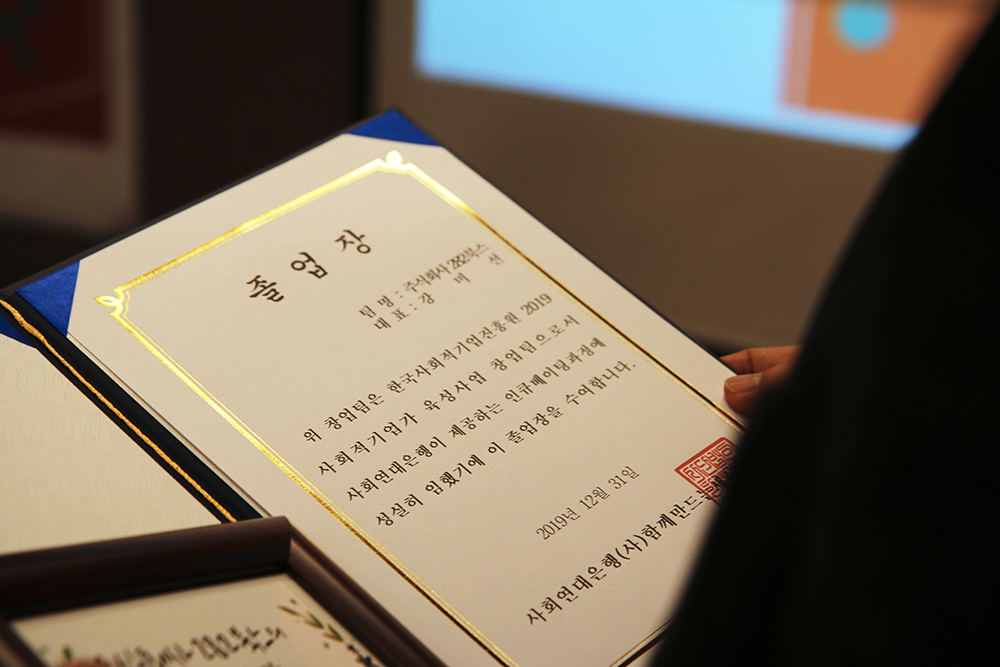 졸업장
팀 명 : 주식회사 282북스
대 표 : 강 미 선
위 창업팀은 한국사회적기업진흥원 2019
사회적기업가 육성사업 창업팀으로서
사회연대은행이 제공하는 인큐베이팅과정에
성실히 임했기에 이 졸업장을 수여합니다.
2019년 12월 31일
사회연대은행(사)함께만드는